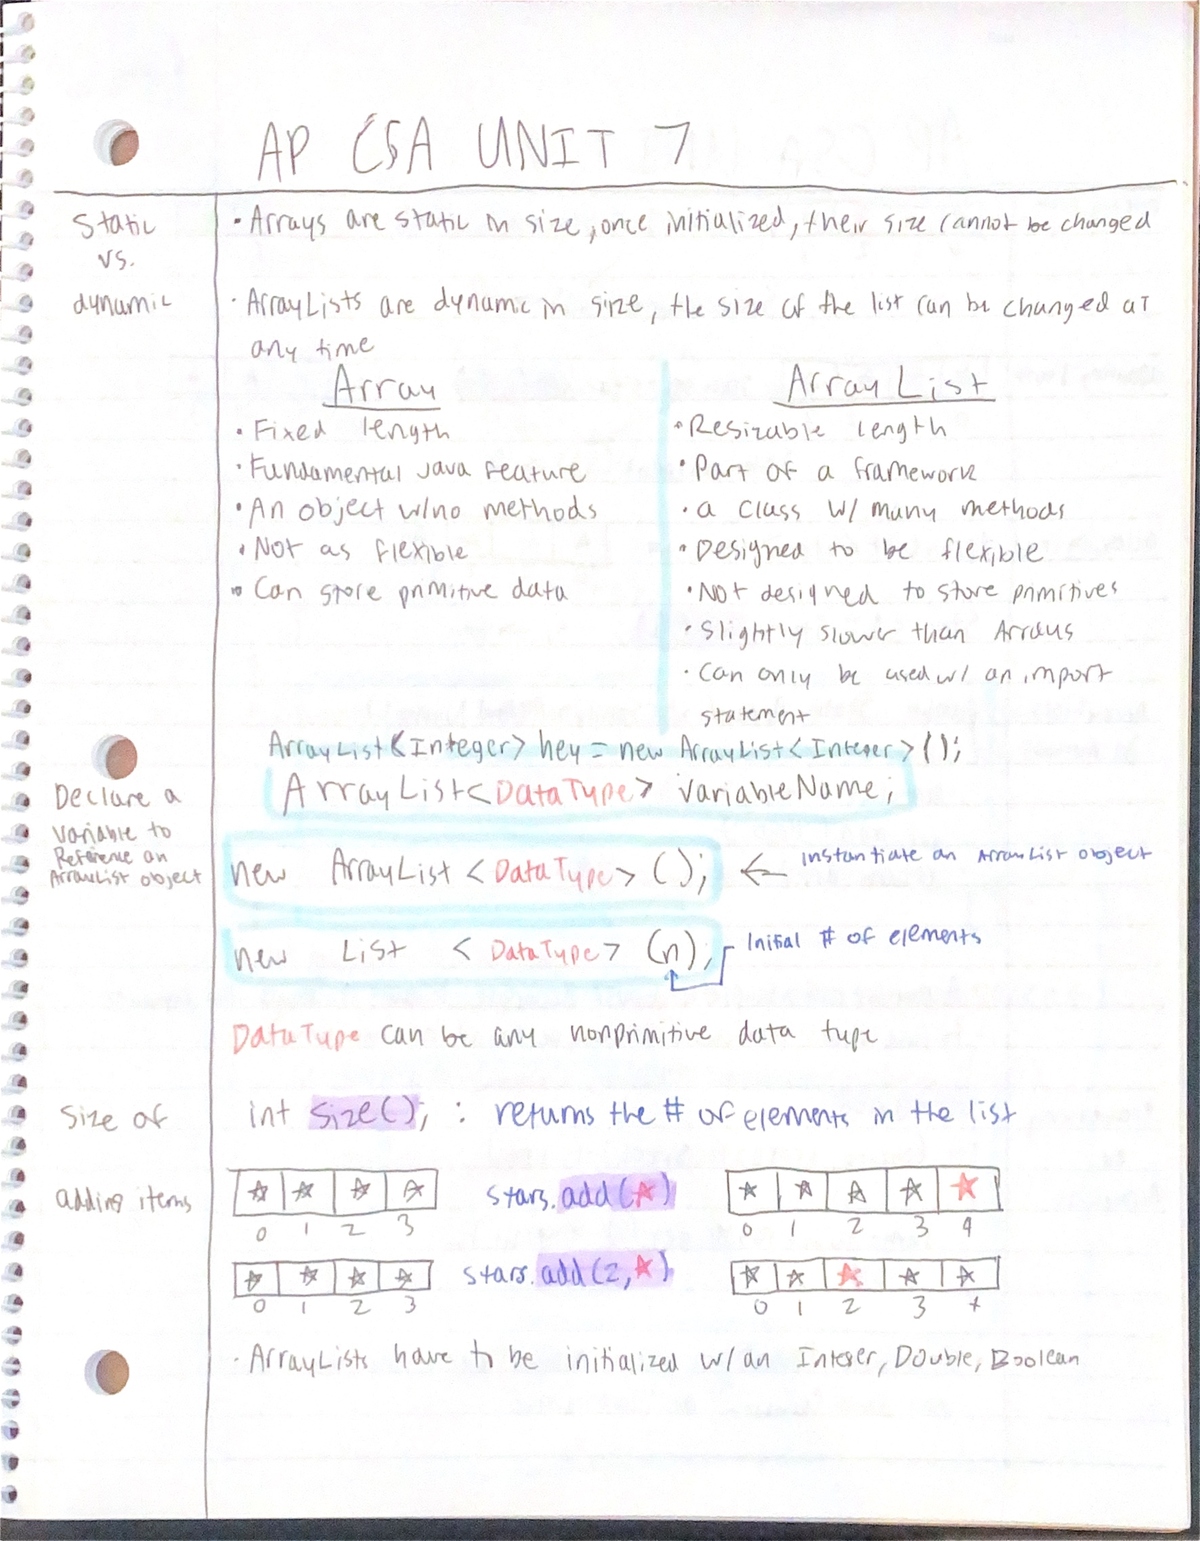 AP CSA UNIT 7
Static
vs.
dynamic
• Arrays are static in size, once initialized, their size cannot be changed
• ArrayLists are dynamic in size, the size of the list can be changed at
any time
Array
• Fixed length
• Fundamental Java feature
• An object w/no methods
• Not as flexible
• Can store primitive data
ArrayList
• Resizable length
• Part of a framework
• a class w/ many methods
• Designed to be flexible
• Not designed to store primitives
• Slightly slower than Arrays
• Can only be used w/ an import
statement
ArrayList<Integer> hey = new ArrayList<Integer>();
Declare a
variable to
Reference an
ArrayList object
ArrayList<DataType> variableName;
new ArrayList <DataType> (); ← instantiate an ArrayList object
new List <DataType> (n); Initial # of elements
DataType can be any nonprimitive data type
Size of
int size(); : returns the # of elements in the list
adding items
☆ ☆ ☆ ☆ stars.add(☆) ☆ ☆ ☆ ☆ ☆
0 1 2 3 0 1 2 3 4
☆ ☆ ☆ ☆ stars.add(2,☆) ☆ ☆ ☆ ☆ ☆
0 1 2 3 0 1 2 3 4
• ArrayLists have to be initialized w/ an Integer, Double, Boolean